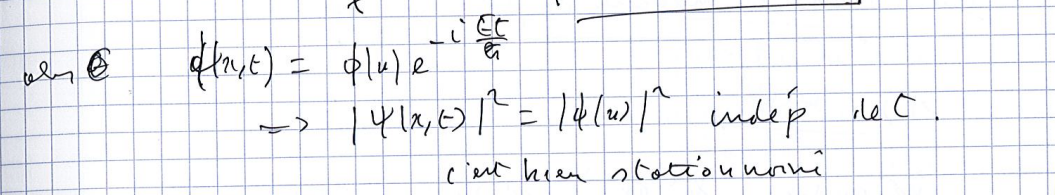 φ(x,t) = φ(x) e^{-i Et/ħ}
=> |ψ(x,t)|² = |φ(x)|² indép de t.
c'est bien stationnaire